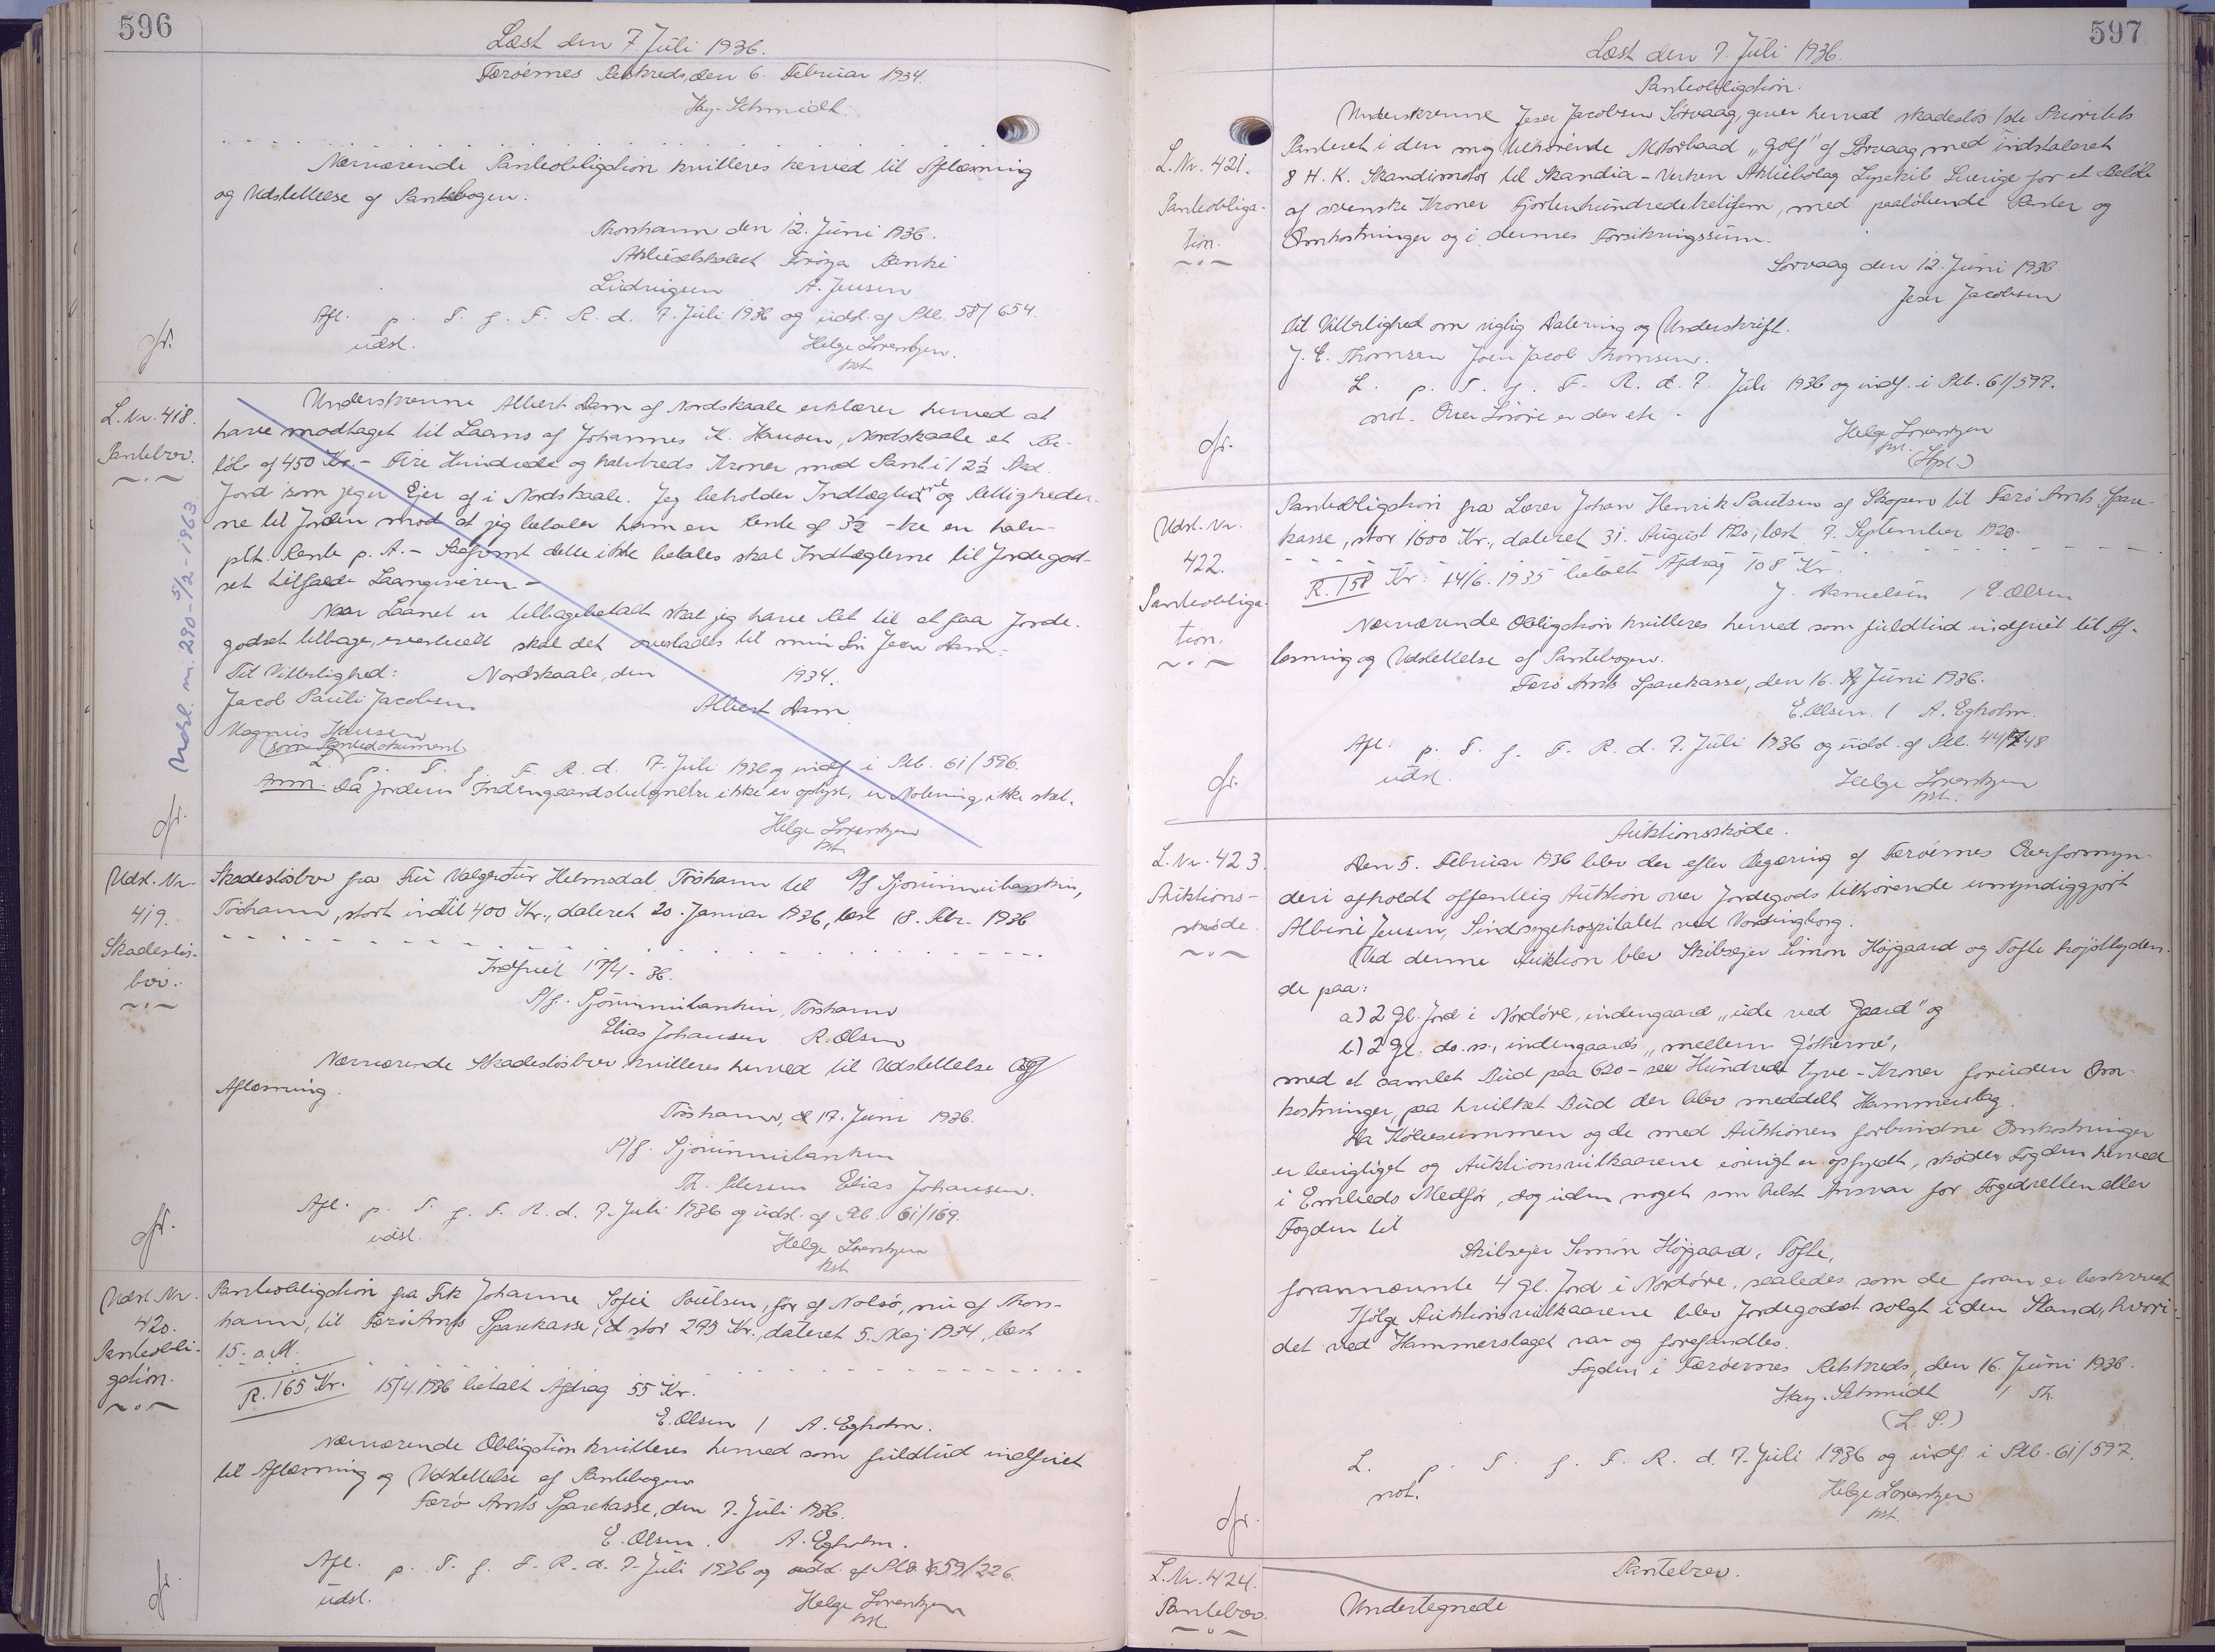 596
Læst den 7. Juli 1936.
Færøernes Retskreds, den 6. Februar 1934.
Hey-Schmidt.
Nærværende Panteobligation kvitteres herved til Aflæsning
og Udslettelse af Pantebogen.
Thorshavn den 12. Juni 1936.
Aktieselskabet Føroya Banki
Lüdvigsen A. Jensen
Afl. p. T. f. F. R. d. 7. Juli 1936 og udsl. af Ptb. 58/654.
udsl.
Helge Lorentzen.
kst.
L. Nr. 418.
Pantebrev.
Udsl. m. 290-5/2-1963
Underskrevne Albert Dam af Nordskaale erklærer herved at
have modtaget til Laans af Johannes K. Hansen, Nordskaale et Be-
løb af 450 Kr. - Fire Hundrede og halvtreds Kroner mod Pant i 2½ Skd.
Jord som jeg er Ejer af i Nordskaale. Jeg beholder Indtægterne og Rettigheder-
ne til Jorden mod at jeg betaler ham en Rente af 3½ - tre en halv -
pCt. Rente p. A. - Saafremt dette ikke betales skal Indtægterne til Jordegod-
set tilfalde Laangiveren -
Naar Laanet er tilbagebetalt skal jeg have Ret til at faa Jorde-
godset tilbage, eventuelt skal det overlades til min Søn Jens Dam.-
Til Vitterlighed: Nordskaale, den 1934.
Jacob Pauli Jacobsen
Albert Dam
Magnus Hansen
(som Pantedokument)
L. p. T. f. F. R. d. 7. Juli 1936 og indf. i Ptb. 61/596.
Anm. Da Jordens Indengaardsbetegnelse ikke er oplyst, er Notering ikke sket.
Helge Lorentzen
kst.
Udsl. Nr.
419.
Skadesløs-
brev.
Skadesløsbrev fra Frü Valgerdur Helmsdal, Tórshavn til P/f Sjóvinnubankin,
Tórshavn, stort indtil 400 Kr., dateret 20. Januar 1936, læst 18. Febr. 1936
Indfriet 17/4 - 36.
P/f. Sjóvinnubankin, Tórshavn
Elias Johansen R. Olsen
Nærværende Skadesløsbrev kvitteres herved til Udslettelse og
Aflæsning.
Tórshavn, d 17. Juni 1936.
P/f. Sjóvinnubankin
Th. Petersen Elias Johansen.
Afl. p. T. f. F. R. d. 7. Juli 1936 og udsl. af Ptb. 61/169.
udsl.
Helge Lorentzen
kst.
Udsl. Nr.
420.
Panteobli-
gation.
Panteobligation fra Frk. Johanne Sofie Poulsen, før af Nolsø, nu af Thors-
havn, til Færø Amts Sparekasse, stor 295 Kr., dateret 5. Maj 1934, læst
15. s. M.
R. 165 Kr. 15/4 1936 betalt Afdrag 55 Kr.
E. Olsen / A. Egholm.
Nærværende Obligation kvitteres herved som fuldtud indfriet
til Aflæsning og Udslettelse af Pantebogen
Færø Amts Sparekasse, den 7. Juli 1936.
E. Olsen. A. Egholm.
Afl. p. T. f. F. R. d. 7. Juli 1936 og udsl. af Ptb. 59/226
udsl.
Helge Lorentzen
kst.
597
Læst den 7. Juli 1936.
Panteobligation.
L. Nr. 421.
Panteobliga-
tion.
Underskrevne Jeser Jacobsen Sørvaag, giver herved skadesløs 1ste Prioritets
Panteret i den mig tilhørende Motorbaad "Golf" af Sørvaag med indstaleret
8 H. K. Skandimotor til Skandia-Verken Aktiebolag Lysekil Sverige for et Beløb
af svenske Kroner Fjortenhundredetretifem, med paaløbende Renter og
Omkostninger og i dennes Forsikringssum.
Sørvaag den 12. Juni 1936.
Jeser Jacobsen
Til Vitterlighed om rigtig Datering og Underskrift.
J. E. Thomsen Joen Jacob Thomsen.
L. p. T. f. F. R. d. 7. Juli 1936 og indf. i Ptb. 61/597.
not.
Helge Lorentzen
kst.
Udsl. Nr.
422.
Panteobliga-
tion.
Panteobligation fra Lærer Johan Henrik Poulsen af Skopen til Færø Amts Spare-
kasse, stor 1600 Kr., dateret 31. August 1920, læst 7. September 1920.
R. 158 Kr. 14/6. 1935 betalt Afdrag 108 Kr.
J. Danielsen / E. Olsen
Nærværende Obligation kvitteres herved som fuldtud indfriet til Af-
læsning og Udslettelse af Pantebogen.
Færø Amts Sparekasse, den 16. Juni 1936.
E. Olsen. / A. Egholm.
Afl. p. T. f. F. R. d. 7. Juli 1936 og udsl. af Ptb. 44/748
udsl.
Helge Lorentzen
kst.
Auktionsskøde.
L. Nr. 423.
Auktions-
skøde.
Den 5. Februar 1936 blev der efter Begæring af Færøernes Overformyn-
deri afholdt offentlig Auktion over Jordegods tilhørende umyndiggjort
Albine Jensen, Sindsygehospitalet ved Vordingborg.
Ved denne Auktion blev Skibsejer Simon Højgaard og Tofte højstbyden-
de paa:
a) 2 Gl. Jord i Nordøre, indengaard "ude ved Gaard" og
b) 2 Gl. do. s., indengaards "mellem Gøtherne",
med et samlet Bud paa 620 - seks Hundrede tyve - Kroner foruden Om-
kostninger, paa hvilket Bud der blev meddelt Hammerslag.
Da Købesummen og de med Auktionen forbundne Omkostninger
er berigtiget og Auktionsvilkaarene iøvrigt er opfyldt, skøder Fogden herved
i Embeds Medfør, dog uden noget som helst Ansvar for Fogedretten eller
Fogden til
Skibsejer Simon Højgaard, Tofte,
forannævnte 4 Gl. Jord i Nordøre, saaledes som de foran er beskrevet
Ifølge Auktionsvilkaarene blev Jordegodset solgt i den Stand, hvori-
det ved Hammerslaget var og forefandtes.
Fogden i Færøernes Retskreds, den 16. Juni 1936.
Hey-Schmidt / Th.
(L. S.)
L. p. T. f. F. R. d. 7. Juli 1936 og indf. i Ptb. 61/597.
not.
Helge Lorentzen
kst.
L. Nr. 424.
Pantebrev.
Pantebrev.
Undertegnede